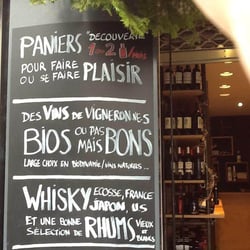 PANIERS "DECOUVERTE"
1 ou 2 /MOIS
POUR FAIRE
OU SE FAIRE PLAISIR
DES VINS DE VIGNERON·NES
BIOS OU PAS MAIS BONS
LARGE CHOIX EN BIODYNAMIE/VINS NATURELS...
WHISKY ECOSSE, FRANCE
JAPON, US
ET UNE BONNE
SÉLECTION DE RHUMS VIEUX ET
BLANCS